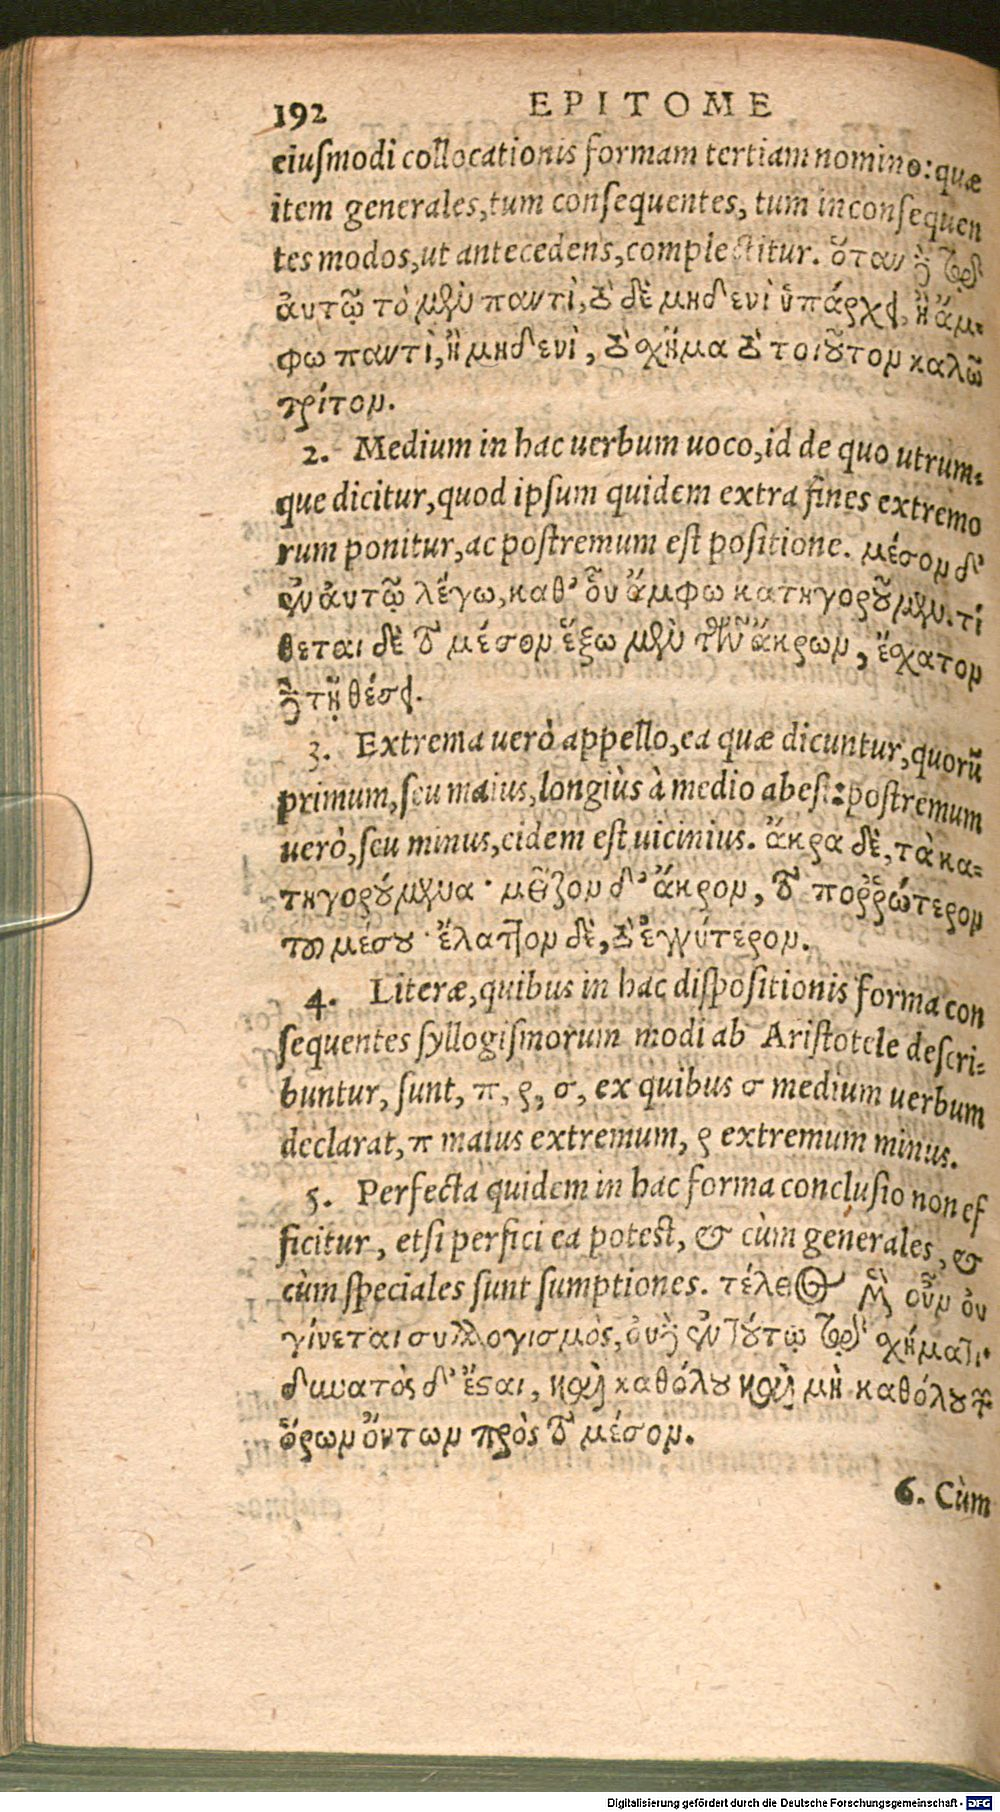 192 EPITOME
eiusmodi collocationis formam tertiam nomino: quæ
item generales, tum consequentes, tum inconsequen
tes modos, ut antecedens, complectitur. ὅταν ἢ τῷ
ἀυτῷ τὸ μὲν παντὶ, τὸ δὲ μηδενὶ ὑπάρχῃ, ἢ ἄμ-
φω παντὶ, ἢ μηδενὶ, τὸ χῆμα τὸ τοιοῦτον καλῶ
τρίτον.
2. Medium in hac uerbum uoco, id de quo utrum-
que dicitur, quod ipsum quidem extra fines extremo
rum ponitur, ac postremum est positione. μέσον δ'
ἐν ἀυτῷ λέγω, καθ' οὗ ἄμφω κατηγοροῦμεν. τί
θεται δὲ τὸ μέσον ἔξω μὲν τῶν ἄκρων, ἔχατον
δὲ τῇ θέσει.
3. Extrema uerò appello, ea quæ dicuntur, quorũ
primum, seu maius, longiùs à medio abest: postremum
uerò, seu minus, eidem est uicinius. ἄκρα δὲ, τὰ κα-
τηγορούμενα· μεῖζον δ' ἄκρον, τὸ ποῤῥώτερον
τοῦ μέσου· ἔλαττον δὲ, τὸ ἐγγύτερον.
4. Literæ, quibus in hac dispositionis forma con
sequentes syllogismorum modi ab Aristotele descri-
buntur, sunt, π, ρ, σ, ex quibus σ medium uerbum
declarat, π maius extremum, ρ extremum minus.
5. Perfecta quidem in hac forma conclusio non ef
ficitur, etsi perfici ea potest, & cùm generales, &
cùm speciales sunt sumptiones. τέλειος μὲν οὖν οὐ
γίνεται συλλογισμὸς, οὐδ' ἐν τούτῳ τῷ χήματι·
δυνατὸς δ' ἔσαι, καὶ καθόλου καὶ μὴ καθόλου τῶν
ὅρων ὄντων πρὸς τὸ μέσον.
6. Cùm
Digitalisierung gefördert durch die Deutsche Forschungsgemeinschaft - DFG